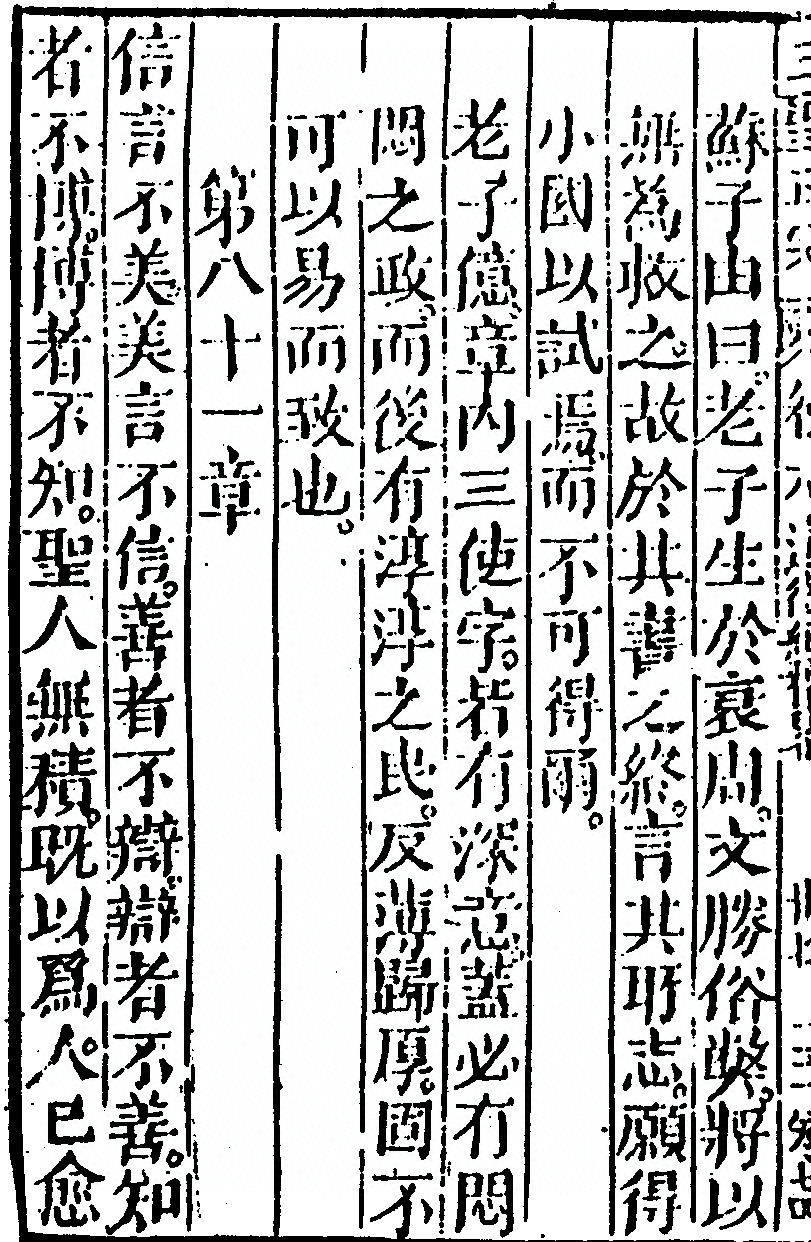 蘇子由曰。老子生於衰周。文勝俗獘。將以
無爲救之。故於其書之終。言其所志。願得
小國以試焉。而不可得爾。
老子億章內三使字。若有深意。蓋必有悶
悶之政。而後有淳淳之民。反薄歸厚。固不
可以易而致也。
第八十一章
信言不美。美言不信。善者不辯。辯者不善。知
者不博。博者不知。聖人無積。既以爲人。己愈